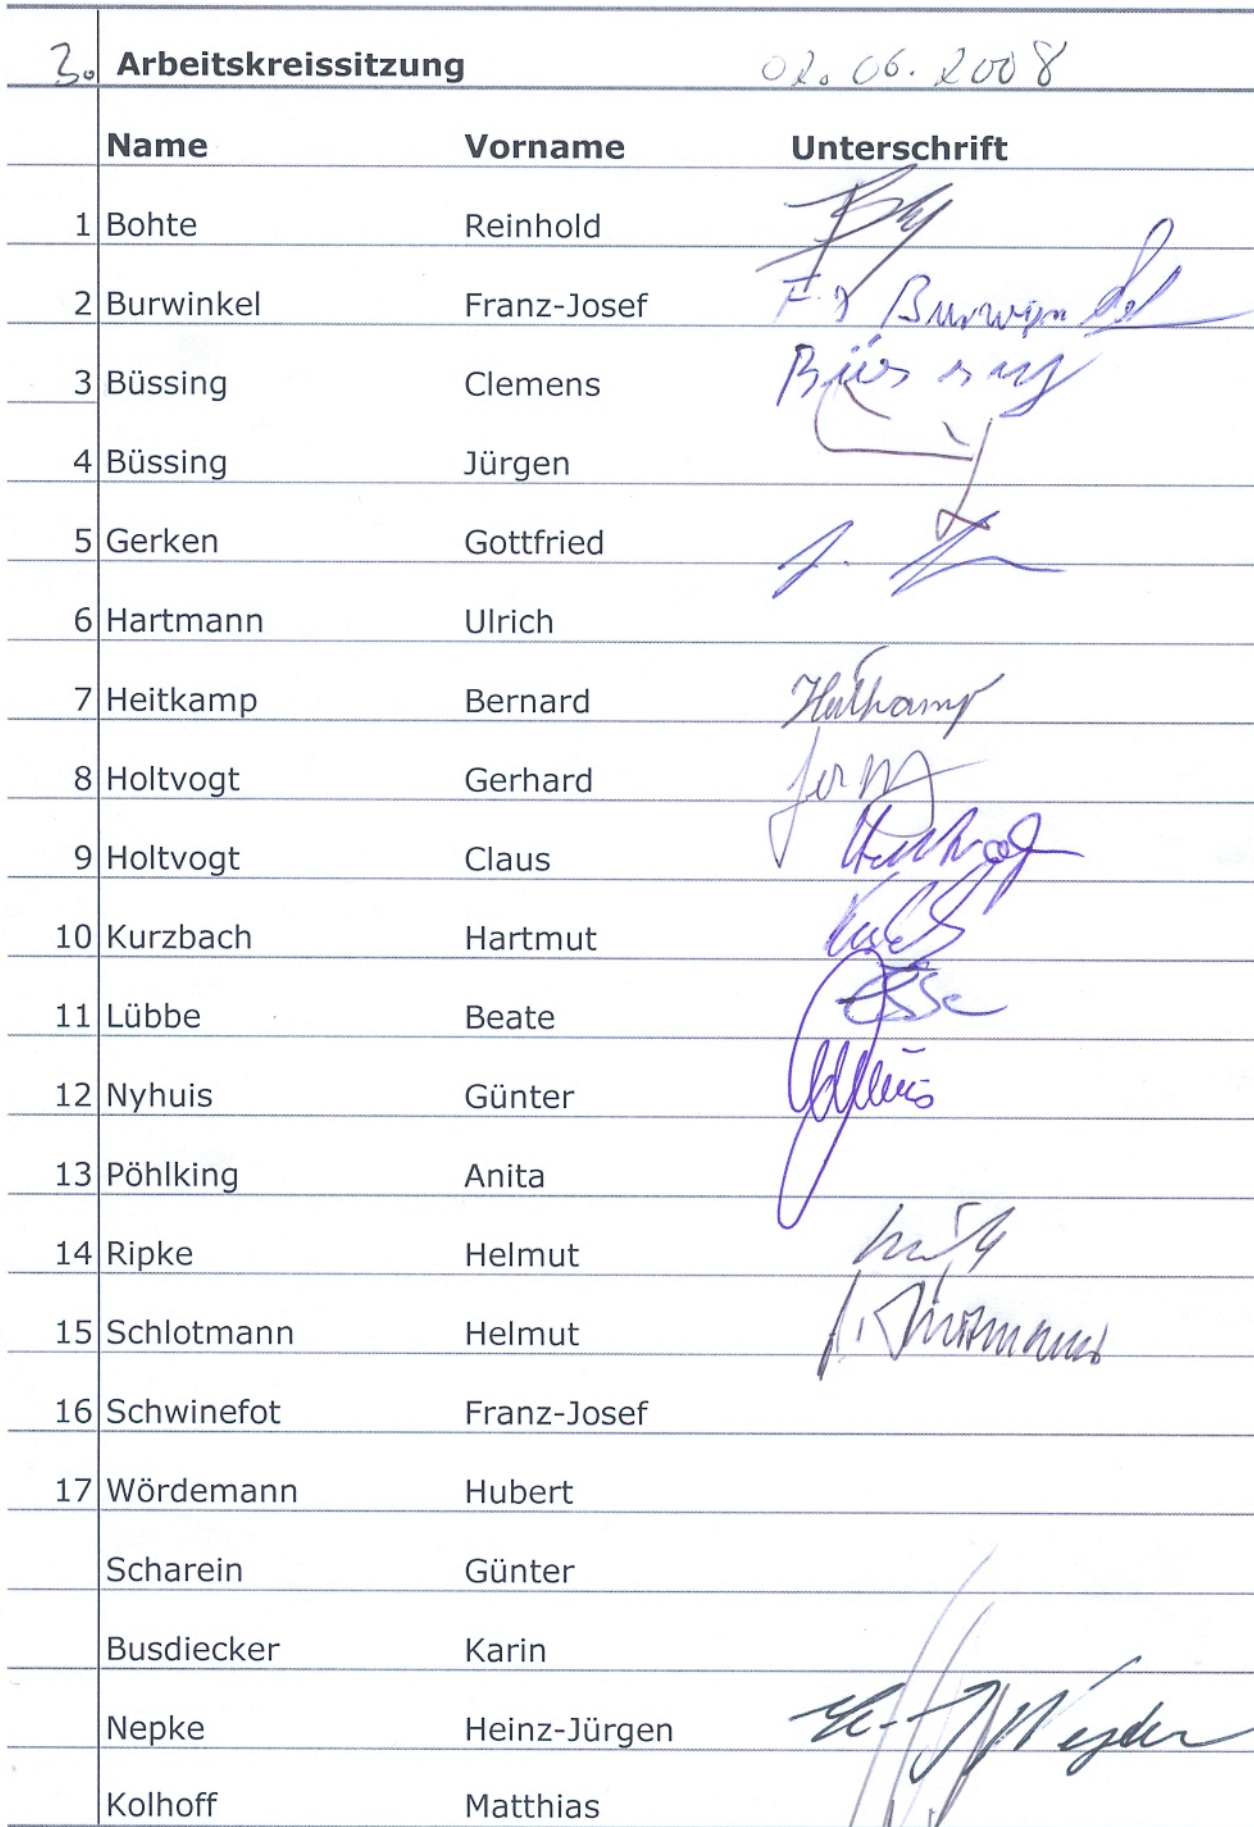 3. Arbeitskreissitzung 02.06.2008
Name Vorname Unterschrift
1 Bohte Reinhold
2 Burwinkel Franz-Josef F.J Burwinkel
3 Büssing Clemens Büssing
4 Büssing Jürgen
5 Gerken Gottfried
6 Hartmann Ulrich
7 Heitkamp Bernard Heitkamp
8 Holtvogt Gerhard
9 Holtvogt Claus
10 Kurzbach Hartmut
11 Lübbe Beate
12 Nyhuis Günter
13 Pöhlking Anita
14 Ripke Helmut
15 Schlotmann Helmut
16 Schwinefot Franz-Josef
17 Wördemann Hubert
Scharein Günter
Busdiecker Karin
Nepke Heinz-Jürgen
Kolhoff Matthias